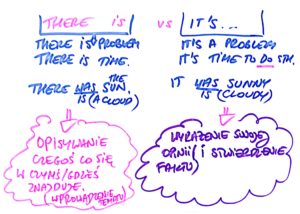 THERE IS
THERE IS A PROBLEM
THERE IS TIME.
THERE WAS THE SUN.
IS (A CLOUD)
OPISYWANIE
CZEGOŚ CO SIĘ
W CZYMŚ/GDZIEŚ
ZNAJDUJE.
(WPROWADZENIE
TEMATU)
VS
IT'S...
IT'S A PROBLEM
IT'S TIME TO DO STH.
IT WAS SUNNY
IS (CLOUDY)
WYRAŻENIE SWOJEJ
OPINII / I STWIERDZENIE
FAKTU